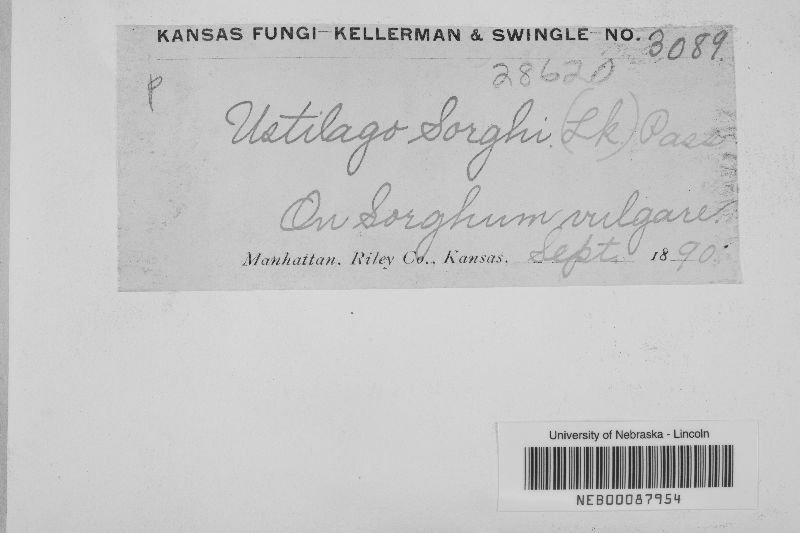 KANSAS FUNGI—KELLERMAN & SWINGLE—NO. 3089.
28620
P
Ustilago Sorghi (Lk) Pass
On Sorghum vulgare.
Manhattan, Riley Co., Kansas, Sept. 1890.
University of Nebraska - Lincoln
NEB00087954